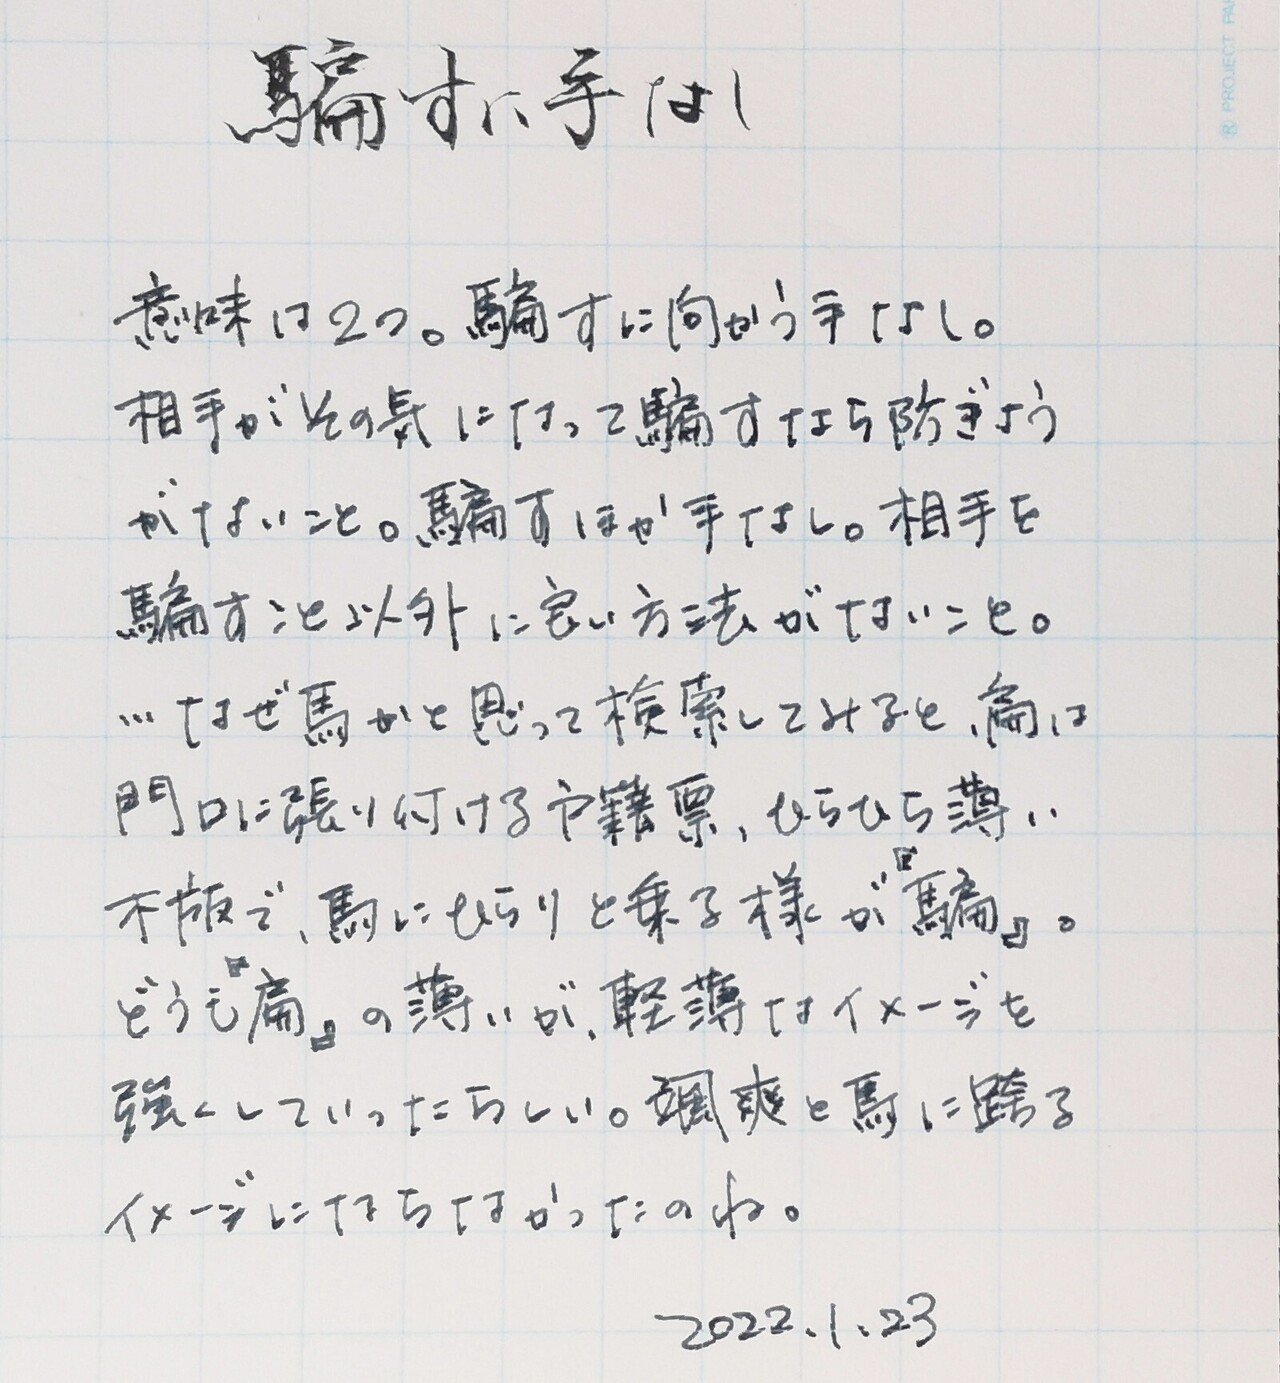 騙すに手なし
意味は2つ。騙すに向かう手なし。
相手がその気になって騙すなら防ぎよう
がないこと。騙すほか手なし。相手を
騙すこと以外に良い方法がないこと。
…なぜ馬かと思って検索してみると、扁は
門口に張り付ける戸籍票、ひらひら薄い
木板で、馬にひらりと乗る様が『騙』。
どうも『扁』の薄いが、軽薄なイメージを
強くしていったらしい。颯爽と馬に跨る
イメージにはならなかったのね。
2022.1.23